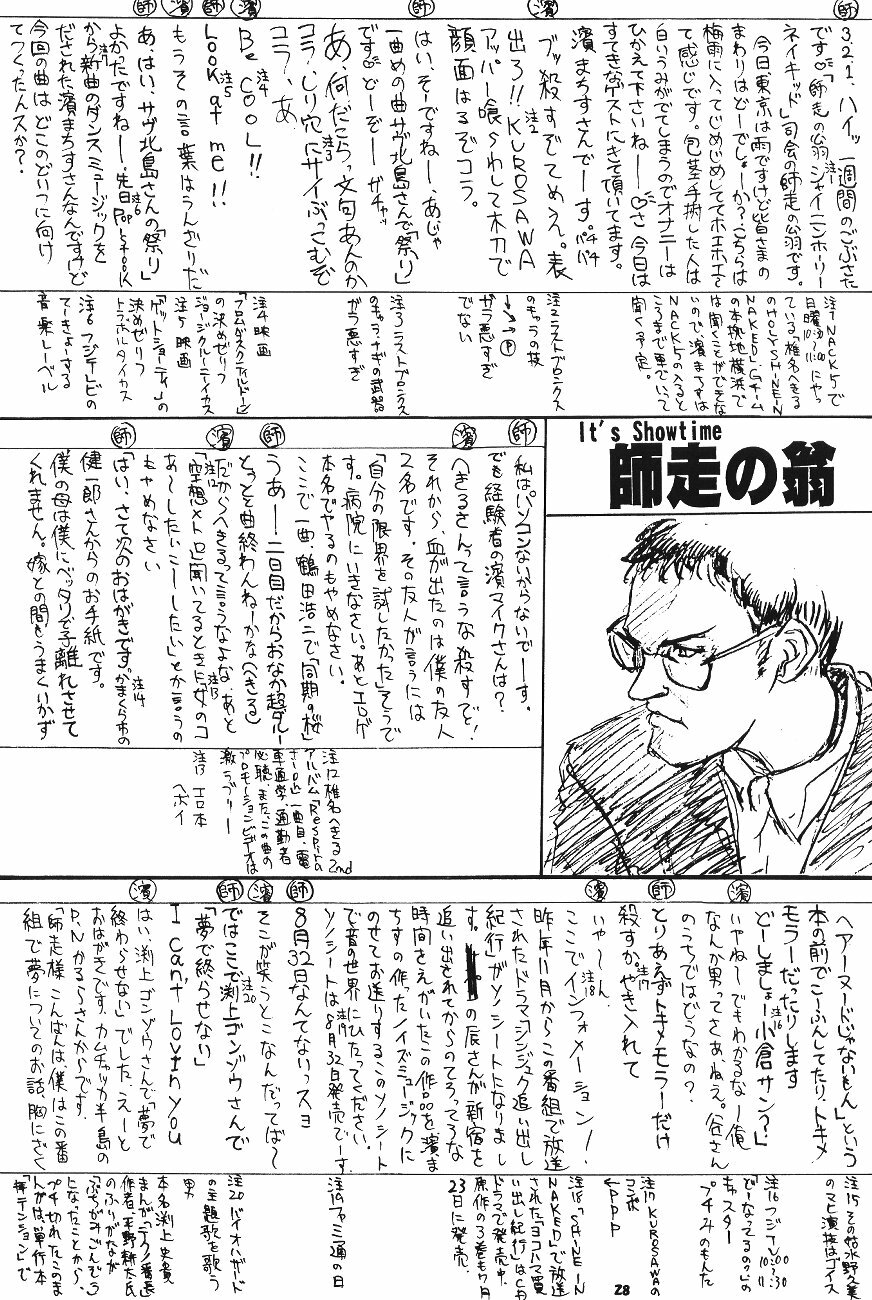 師
濱
師
濱
師
濱
師
3 2 1、ハイッ 一週間のごぶさた
です♡「師走の翁シャイニンホーリー
ネイキッド」司会の師走の翁です。
今日東京は雨ですけど皆さまの
まわりはどーでしょーか?こちらは
梅雨に入ってじめじめしててホエホエ〜
て感じです。包茎手術した人は
白いうみがでてしまうのでオナニーは
ひかえて下さいねー♡さ今日は
すてきなゲストにきて頂いてます。
濱まちすさんでーす。パチパチ
ブッ殺すぞてめえ。表
出ろ!!KUROSAWA
アッパー喰らわして木刀で
顔面はるぞコラ。
はい、そーですねー、あじゃ
一曲めの曲サヴ北島さんで「祭り」
です♡どーぞーガチャッ
あ、何だこらっ文句あんのか
コラ、しり穴にサイぶっこむぞ
コラ、あ
Be COOL!!
Look at me!!
もうその言葉はうんざりだ
あ、はい、サヴ北島さんの「祭り」
よかったですねー。先日Pop Stock
から新曲のダンスミュージックを
だされた濱まちすさんなんですけど
今回の曲はどこのどいつに向け
てつくったんスか?
注1 NACK5で
日曜
ている椎名へきる
のHOLY SHINE IN
NAKED。Gチーム
の本拠地横浜で
は聞くことができな
いので、濱まちすは
NACK5の入ると
ころまで車でいって
聞く予定。
注2 ラストブロンクス
のキャラの技
↓↘→Ⓟ
ガラ悪すぎ
でない
注3 ラストブロンクス
のキャラナギの武器
ガラ悪すぎ
注4 映画
「フロムダスクティルドーン」
の決めゼリフ
ジョージクルーニーイカス
注5 映画
「ゲットショーティ」の
決めゼリフ
トラボルタイカス
注6 フジテレビの
てーきょーする
音楽レーベル
It's Showtime
師走の翁
師
濱
師
濱
師
私はパソコンないからないでーす。
でも経験者の濱マイクさんは?
へきるさんって言うな殺すぞ!
それから、血が出たのは僕の友人
2名です。その友人が言うには
「自分の限界を試したかった」そうで
す。病院にいきなさい。あとエロゲ
本名でやるのもやめなさい。
ここで一曲、鶴田浩二で「同期の桜」
うあー!二日目だからおなか超ダルー
とっとと曲終わんねーかな(へきる)
だからへきるって言うなよな、あと
「空想メトロ」聞いてるときに女のコ
あ〜したいこーしたい」とか言うの
もやめなさい
はい、さて次のおはがきです。かまくら市の
健一郎さんからのお手紙です。
僕の母は僕にベッタリで子離れさせて
くれません。嫁との間もうまくいかず
注12 椎名へきる2nd
アルバム「Respiration」
一曲目、電
車通学、通勤者
必聴。また、この曲の
プロモーションビデオは
激ラブリー
注13 エロ本
注14
ヘボイ
濱
師
濱
師
濱
師
濱
ヘアーヌードじゃないもん」という
本の前でこーふんしてたり、トキメ
モラーだったりします
どーしましょー小倉サン?」
いやね〜でもわかるなー俺
なんか男ってさあ、ねえ。谷さん
のうちではどうなの?
とりあえずトキメモラーだけ
殺すか。やき入れて
いや〜ん
ここでインフォメーション!
昨年11月からこの番組で放送
されたドラマ「シンジュク追い出し
紀行」がソノシートになりまし
た。
の辰さんが新宿を
追い出されてからのてろってろな
時間をえがいたこの作品を濱ま
ちすの作ったノイズミュージックに
のせてお送りするこのソノシート
で音の世界にひたってください。
ソノシートは8月32日発売でーす。
8月32日なんてないっスヨ
そこが笑うとこなんだってば〜
ではここで渕上ゴンゾウさんで
「夢で終らせない」
I can't Lovin you
はい、渕上ゴンゾウさんで「夢で
終わらせない」でした。えーと
おはがきです。カムチャッカ半島の
P.N.かるらさんからです。
「師走様こんばんは僕はこの番
組で夢についてのお話、胸にざく
注15 その他水野久美
のマヒ演技はゴイス
注16 フジテレビ
「どーなってるの?!」の
キャスター
プチみのもんた
注17 KUROSAWAの
コンボ
←PPP
注18「SHINE IN
NAKED」で放送
された「ヨコハマ買
い出し紀行」はCD
ドラマで発売中。
原作の3巻も7月
23日に発売。
注19 ファミ通の日
注20 バイオハザード
の主題歌を歌う
男
本名渕上史貴
まんが「テクノ番長」
作者、平野耕太氏
28